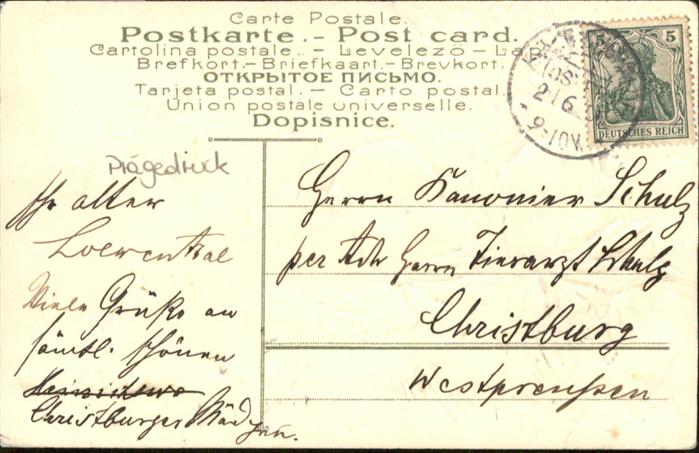 Carte Postale.
Postkarte.- Post card.
Cartolina postale. - Levelezö - Lap
Brefkort.- Briefkaart.- Brevkort.
ОТКРЫТОЕ ПИСЬМО.
Tarjeta postal. - Carto postal.
Union postale universelle.
Dopisnice.
5 5
DEUTSCHES REICH
2/6
9-10V.
Prägedruck
Ihr alter
Loewenthal
Viele Grüße an
sämtl. schönen
Christburger Mädchen.
Herrn Kanonier Schulz
per Adr Herrn Tierarzt Schulz
Christburg
Westpreußen